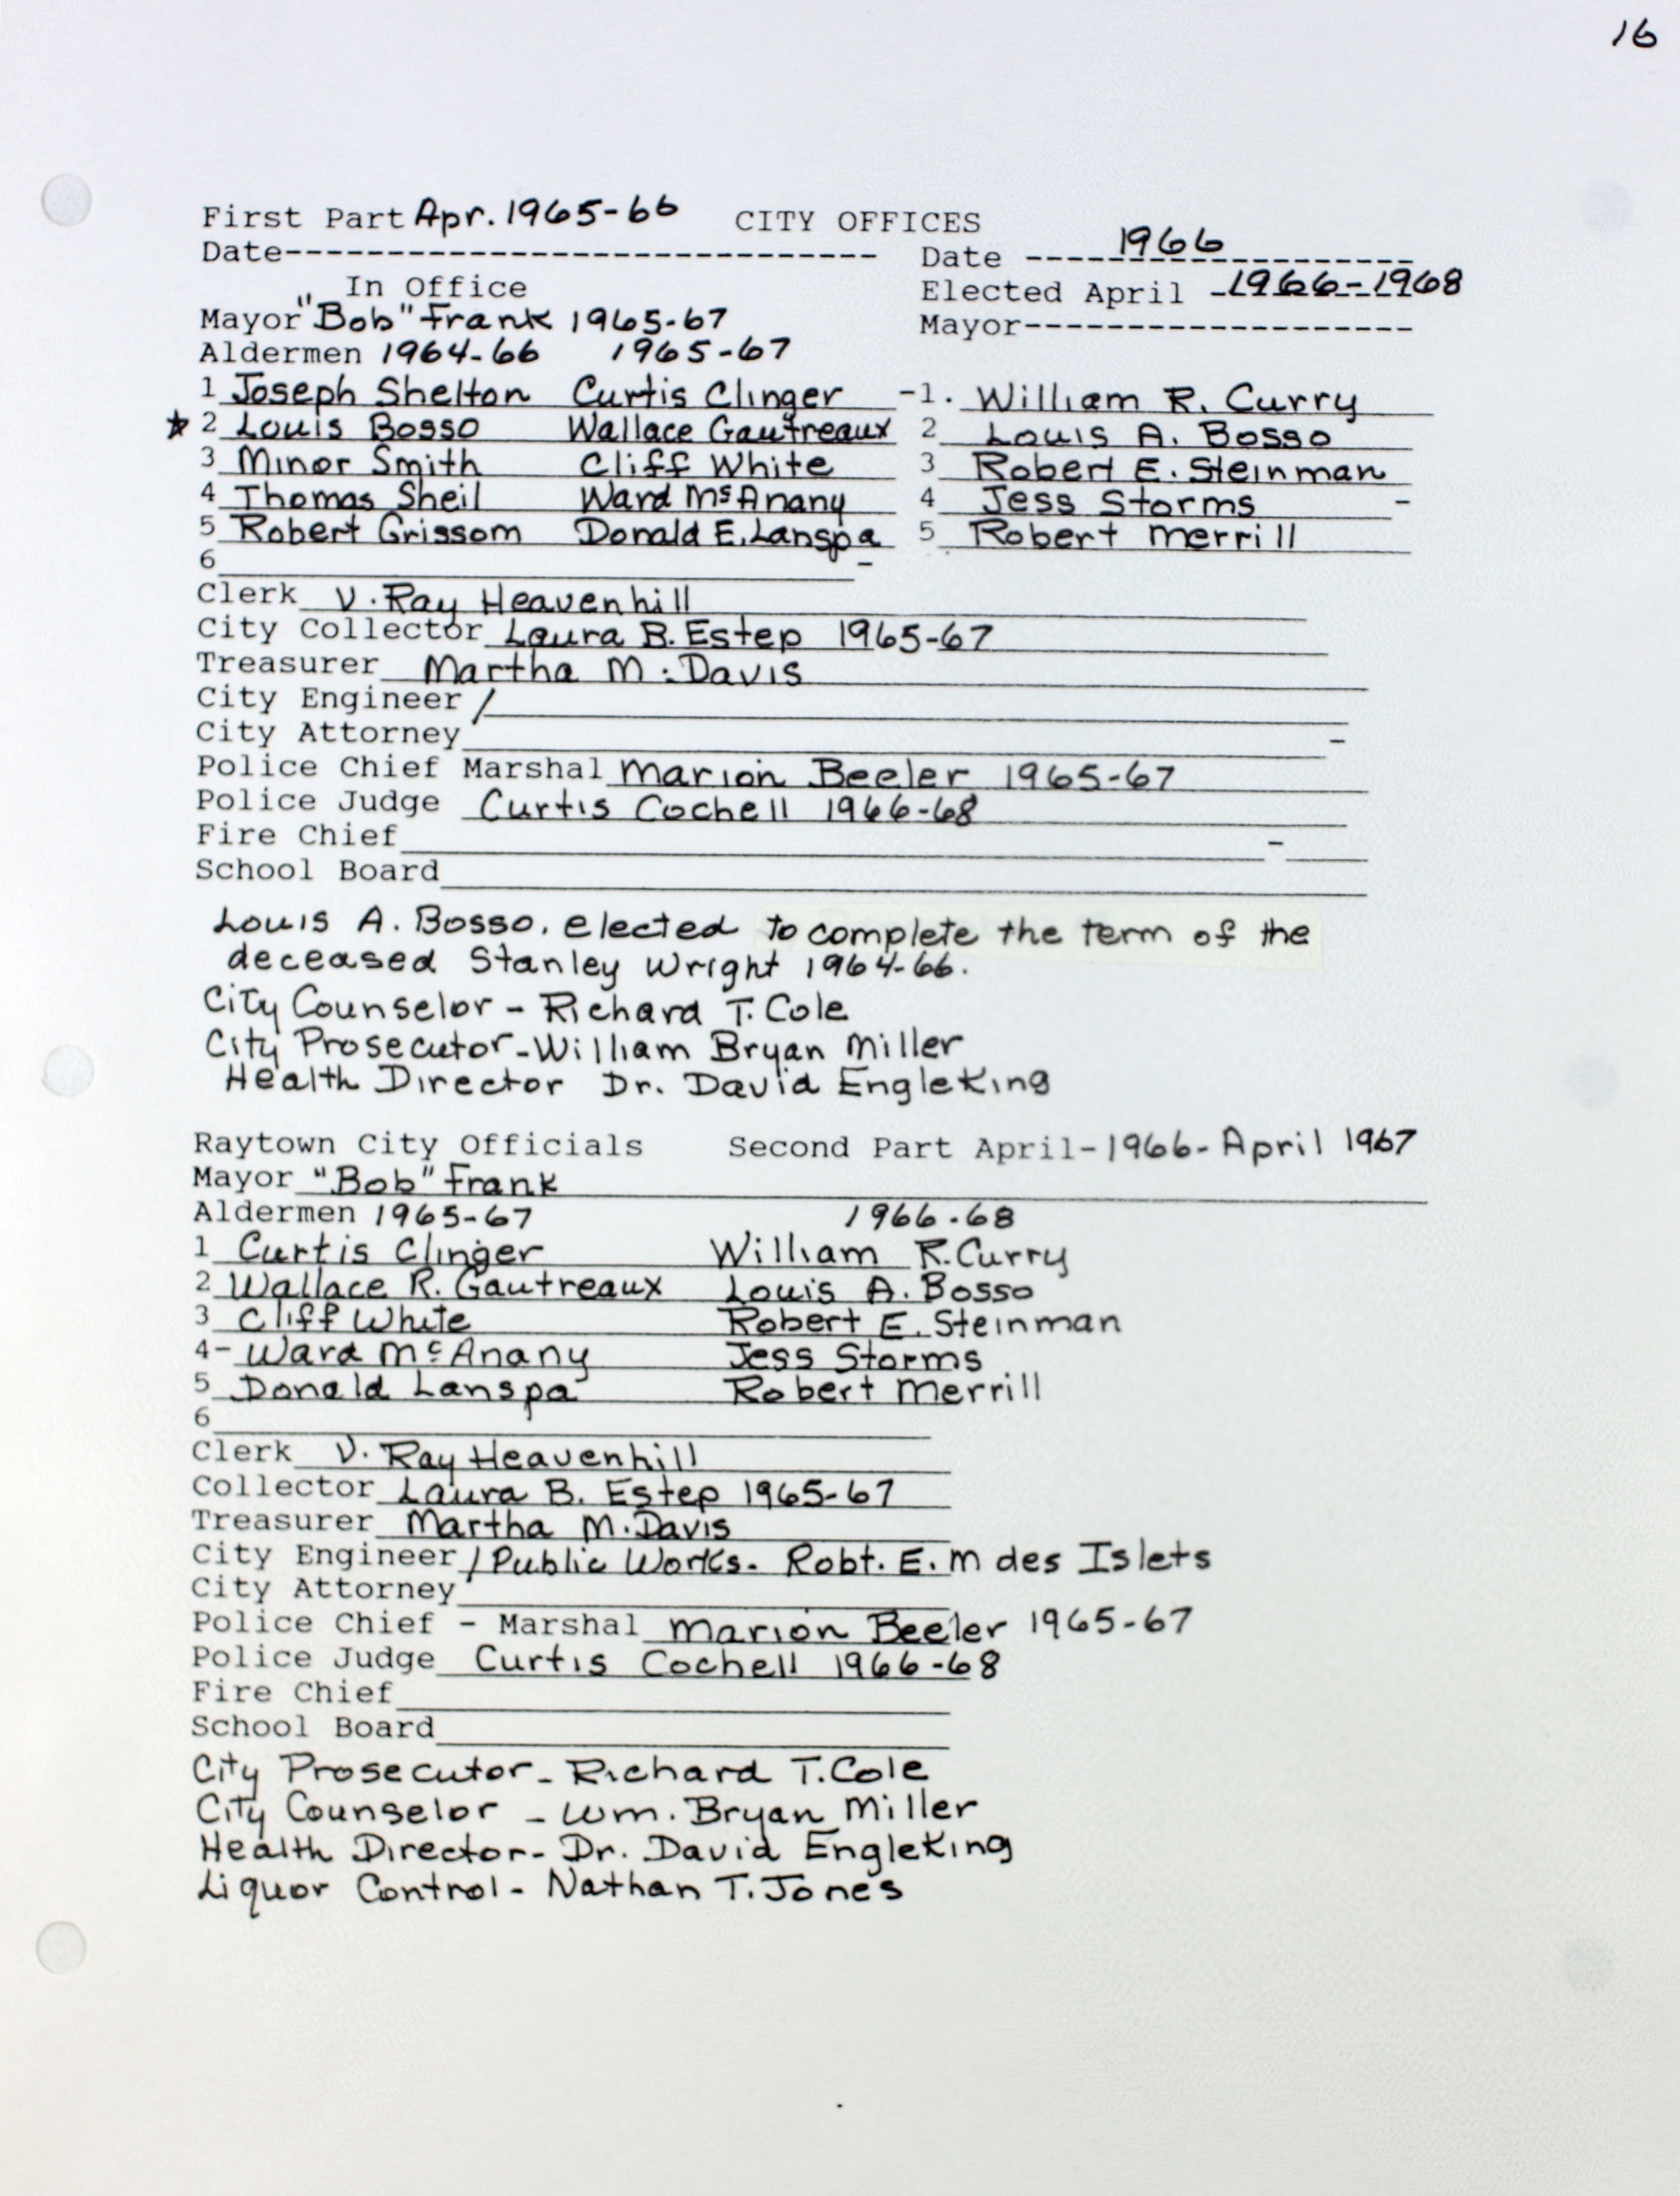 16
First Part Apr. 1965-66 CITY OFFICES
Date------------------------------ Date ---1966------------
In Office Elected April -1966-1968
Mayor "Bob" Frank 1965-67 Mayor-------------------
Aldermen 1964-66 1965-67
1 Joseph Shelton Curtis Clinger -1. William R. Curry
★ 2 Louis Bosso Wallace Gautreaux 2 Louis A. Bosso
3 Minor Smith Cliff White 3 Robert E. Steinman
4 Thomas Sheil Ward McAnany 4 Jess Storms -
5 Robert Grissom Donald E. Lanspa 5 Robert Merrill
6 -
Clerk V. Ray Heavenhill
City Collector Laura B. Estep 1965-67
Treasurer Martha M. Davis
City Engineer /
City Attorney -
Police Chief Marshal Marion Beeler 1965-67
Police Judge Curtis Cochell 1966-68
Fire Chief -
School Board
Louis A. Bosso, elected to complete the term of the
deceased Stanley Wright 1964-66.
City Counselor - Richard T. Cole
City Prosecutor - William Bryan Miller
Health Director Dr. David Engleking
Raytown City Officials Second Part April-1966-April 1967
Mayor "Bob" Frank
Aldermen 1965-67 1966-68
1 Curtis Clinger William R. Curry
2 Wallace R. Gautreaux Louis A. Bosso
3 Cliff White Robert E. Steinman
4- Ward McAnany Jess Storms
5 Donald Lanspa Robert Merrill
6
Clerk V. Ray Heavenhill
Collector Laura B. Estep 1965-67
Treasurer Martha M. Davis
City Engineer / Public Works- Robt. E. M des Islets
City Attorney
Police Chief - Marshal Marion Beeler 1965-67
Police Judge Curtis Cochell 1966-68
Fire Chief
School Board
City Prosecutor - Richard T. Cole
City Counselor - Wm. Bryan Miller
Health Director - Dr. David Engleking
Liquor Control - Nathan T. Jones